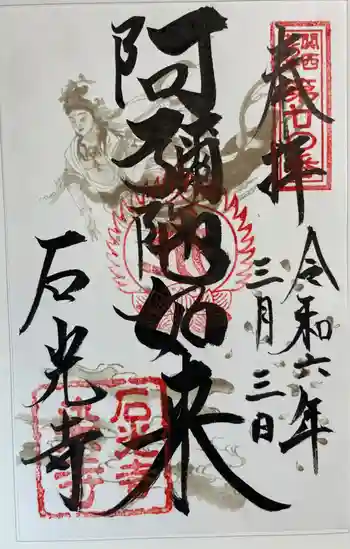 奉拝
関西
令和六年
三月三日
阿彌陀如来
石光寺
石光寺